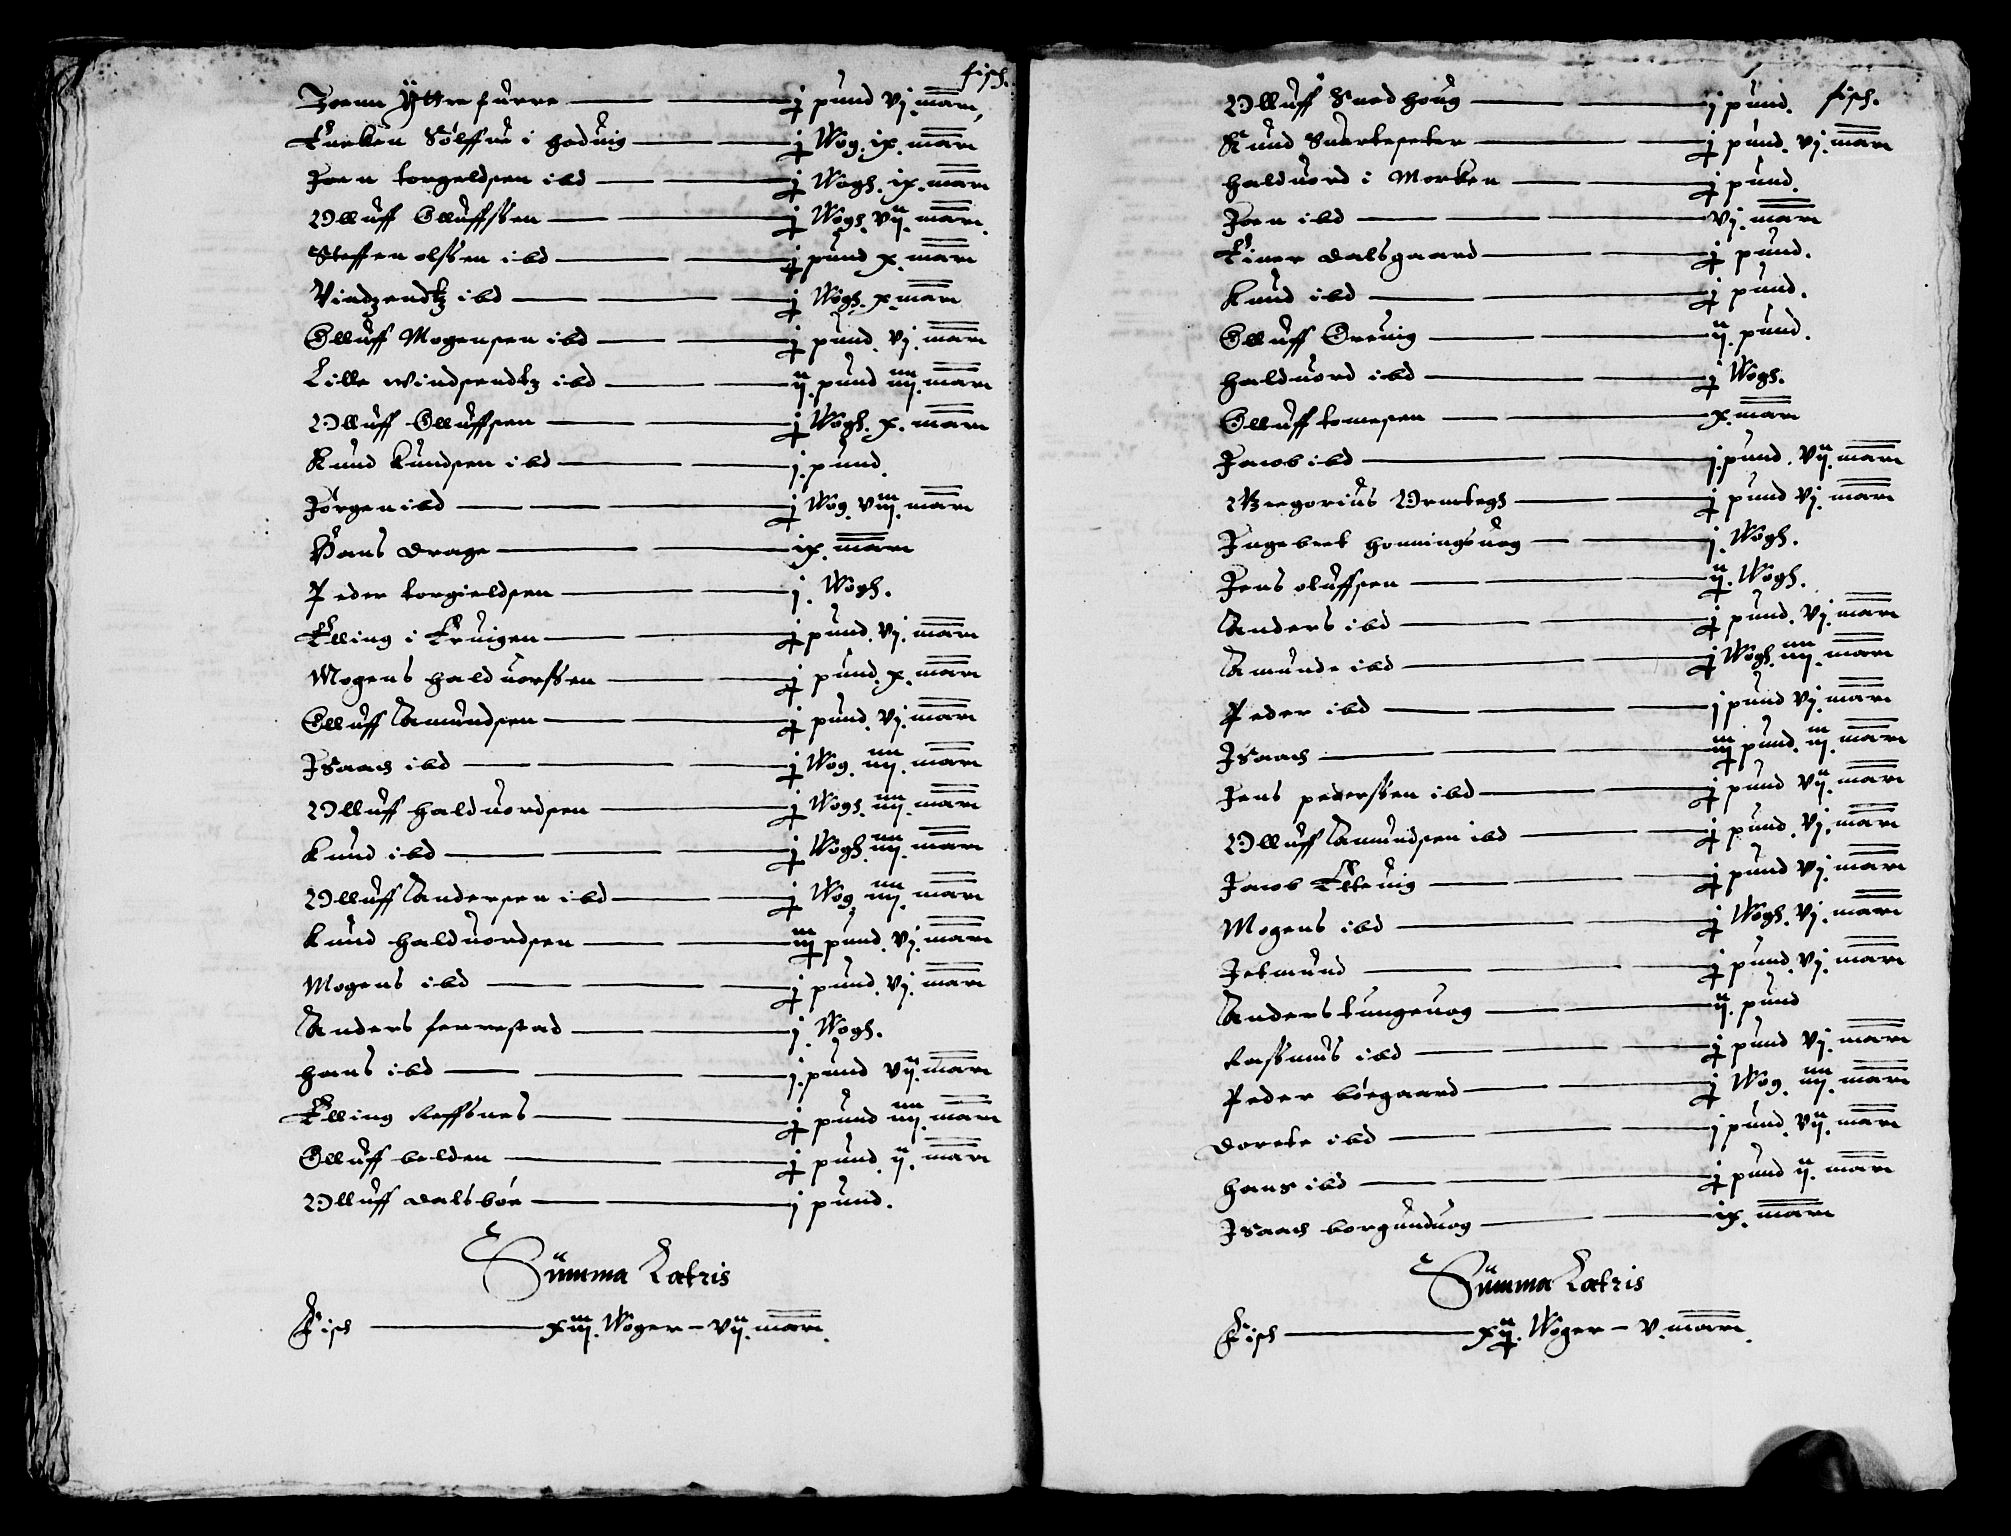 fisch.
Joenn Ÿttre furre — j pund vj. marc
Torbenn Sølffue i haduig — j Wog. ix. marc
Joen torgeldsen ibd — j Wogh. ix. marc
Olluff Olluffssen — j Wogh. vij. marc
Steffen olssen ibd — j pund x. marc
Vindzendtz ibd — j Wogh. x. marc
Olluff Mogensen ibd — j pund. vj. marc
Lille windsendtz ibd — ij. pund iiij. marc
Olluff Olluffsen — j Wogh. x. marc
Knud Knudsen ibd — j. pund.
Jørgen ibd — j Wog. viij. marc
Hans drage — ix. marc
Peder torgieldsen — j. Wogh.
Elling i Eruigen — j pund. vj. marc
Mogens halduorssen — j pund. x. marc
Olluff Amundsen — j pund. vj. marc
Isaach ibd — j Wog. iiij. marc
Olluff halduordsen — j Wogh. iiij. marc
Knud ibd — j Wogh. iiij. marc
Olluff Andersen ibd — j Wog. iiij. marc
Knud halduordsen — iij pund. vj. marc
Mogens ibd — j pund. vj. marc
Anders ferrestad — j Wogh.
hans ibd — j. pund vij. marc
Elling Reffsnes — j pund iiij. marc
Olluff belden — j pund. ij. marc
Olluff dalsbøe — j pund.
Summa Latris
Fisch — xiij. Woger – vij. marc.
Olluff Snedhoug — j pund. fisch.
Knud Suartepeter — j pund. vj. marc
halduord i Morken — j pund.
Joen ibd — vj. marc
Einer dalsgaard — j pund.
Knud ibd — j pund.
Olluff Oreuig — ij. pund.
halduord ibd — j Wogh.
Olluff tomesen — x. marc
Jacob ibd — j. pund. vij. marc
Gregorius Ormtegh — j pund vj. marc
Ingebret honningsuog — j. Wogh.
Jens oluffsen — ij. Wogh.
Anders ibd — j pund. vj. marc
Amunde ibd — j Wogh. iiij. marc
Peder ibd — j pund vj. marc
Isaach — iij pund. iij. marc
Jens pederssen ibd — j pund vij. marc
Olluff Amundsen ibd — j pund. vj. marc
Jacob Elteuig — j pund vj. marc
Mogens ibd — j Wogh. vj. marc
Jetmund — j pund. vj. marc
Anders tungeuog — ij. pund
Rassmus ibd — j pund vj. marc
Peder bøegaard — j Wog. iiij. marc
dorete ibd — j pund. vij. marc
hans ibd — j pund ij. marc
Isaach borgunduog — ix. marc
Summa Latris
Fisch — xij. Woger – v. marc.